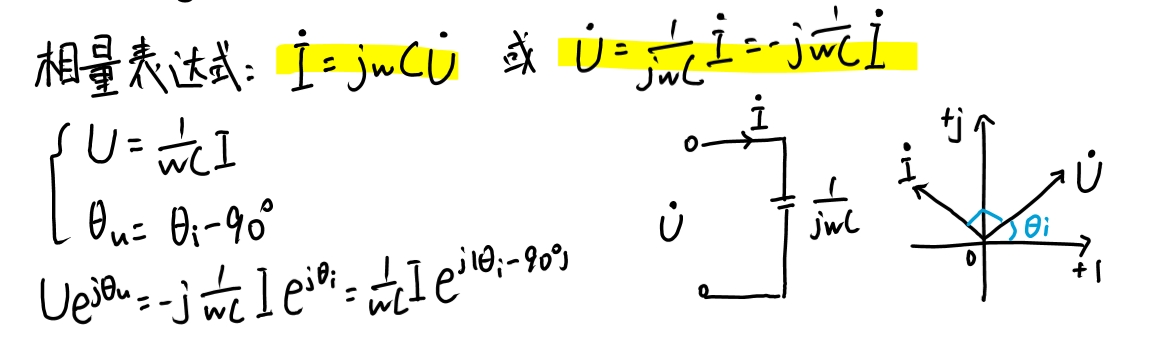 相量表达式: İ = jwCU̇ 或 U̇ = 1/(jwC) İ = -j 1/(wC) İ
{ U = 1/(wC) I
θu = θi - 90°
Ue^(jθu) = -j 1/(wC) I e^(jθi) = 1/(wC) I e^(j(θi-90°))
İ
U̇
1/(jwC)
+j
İ
U̇
θi
0
+1